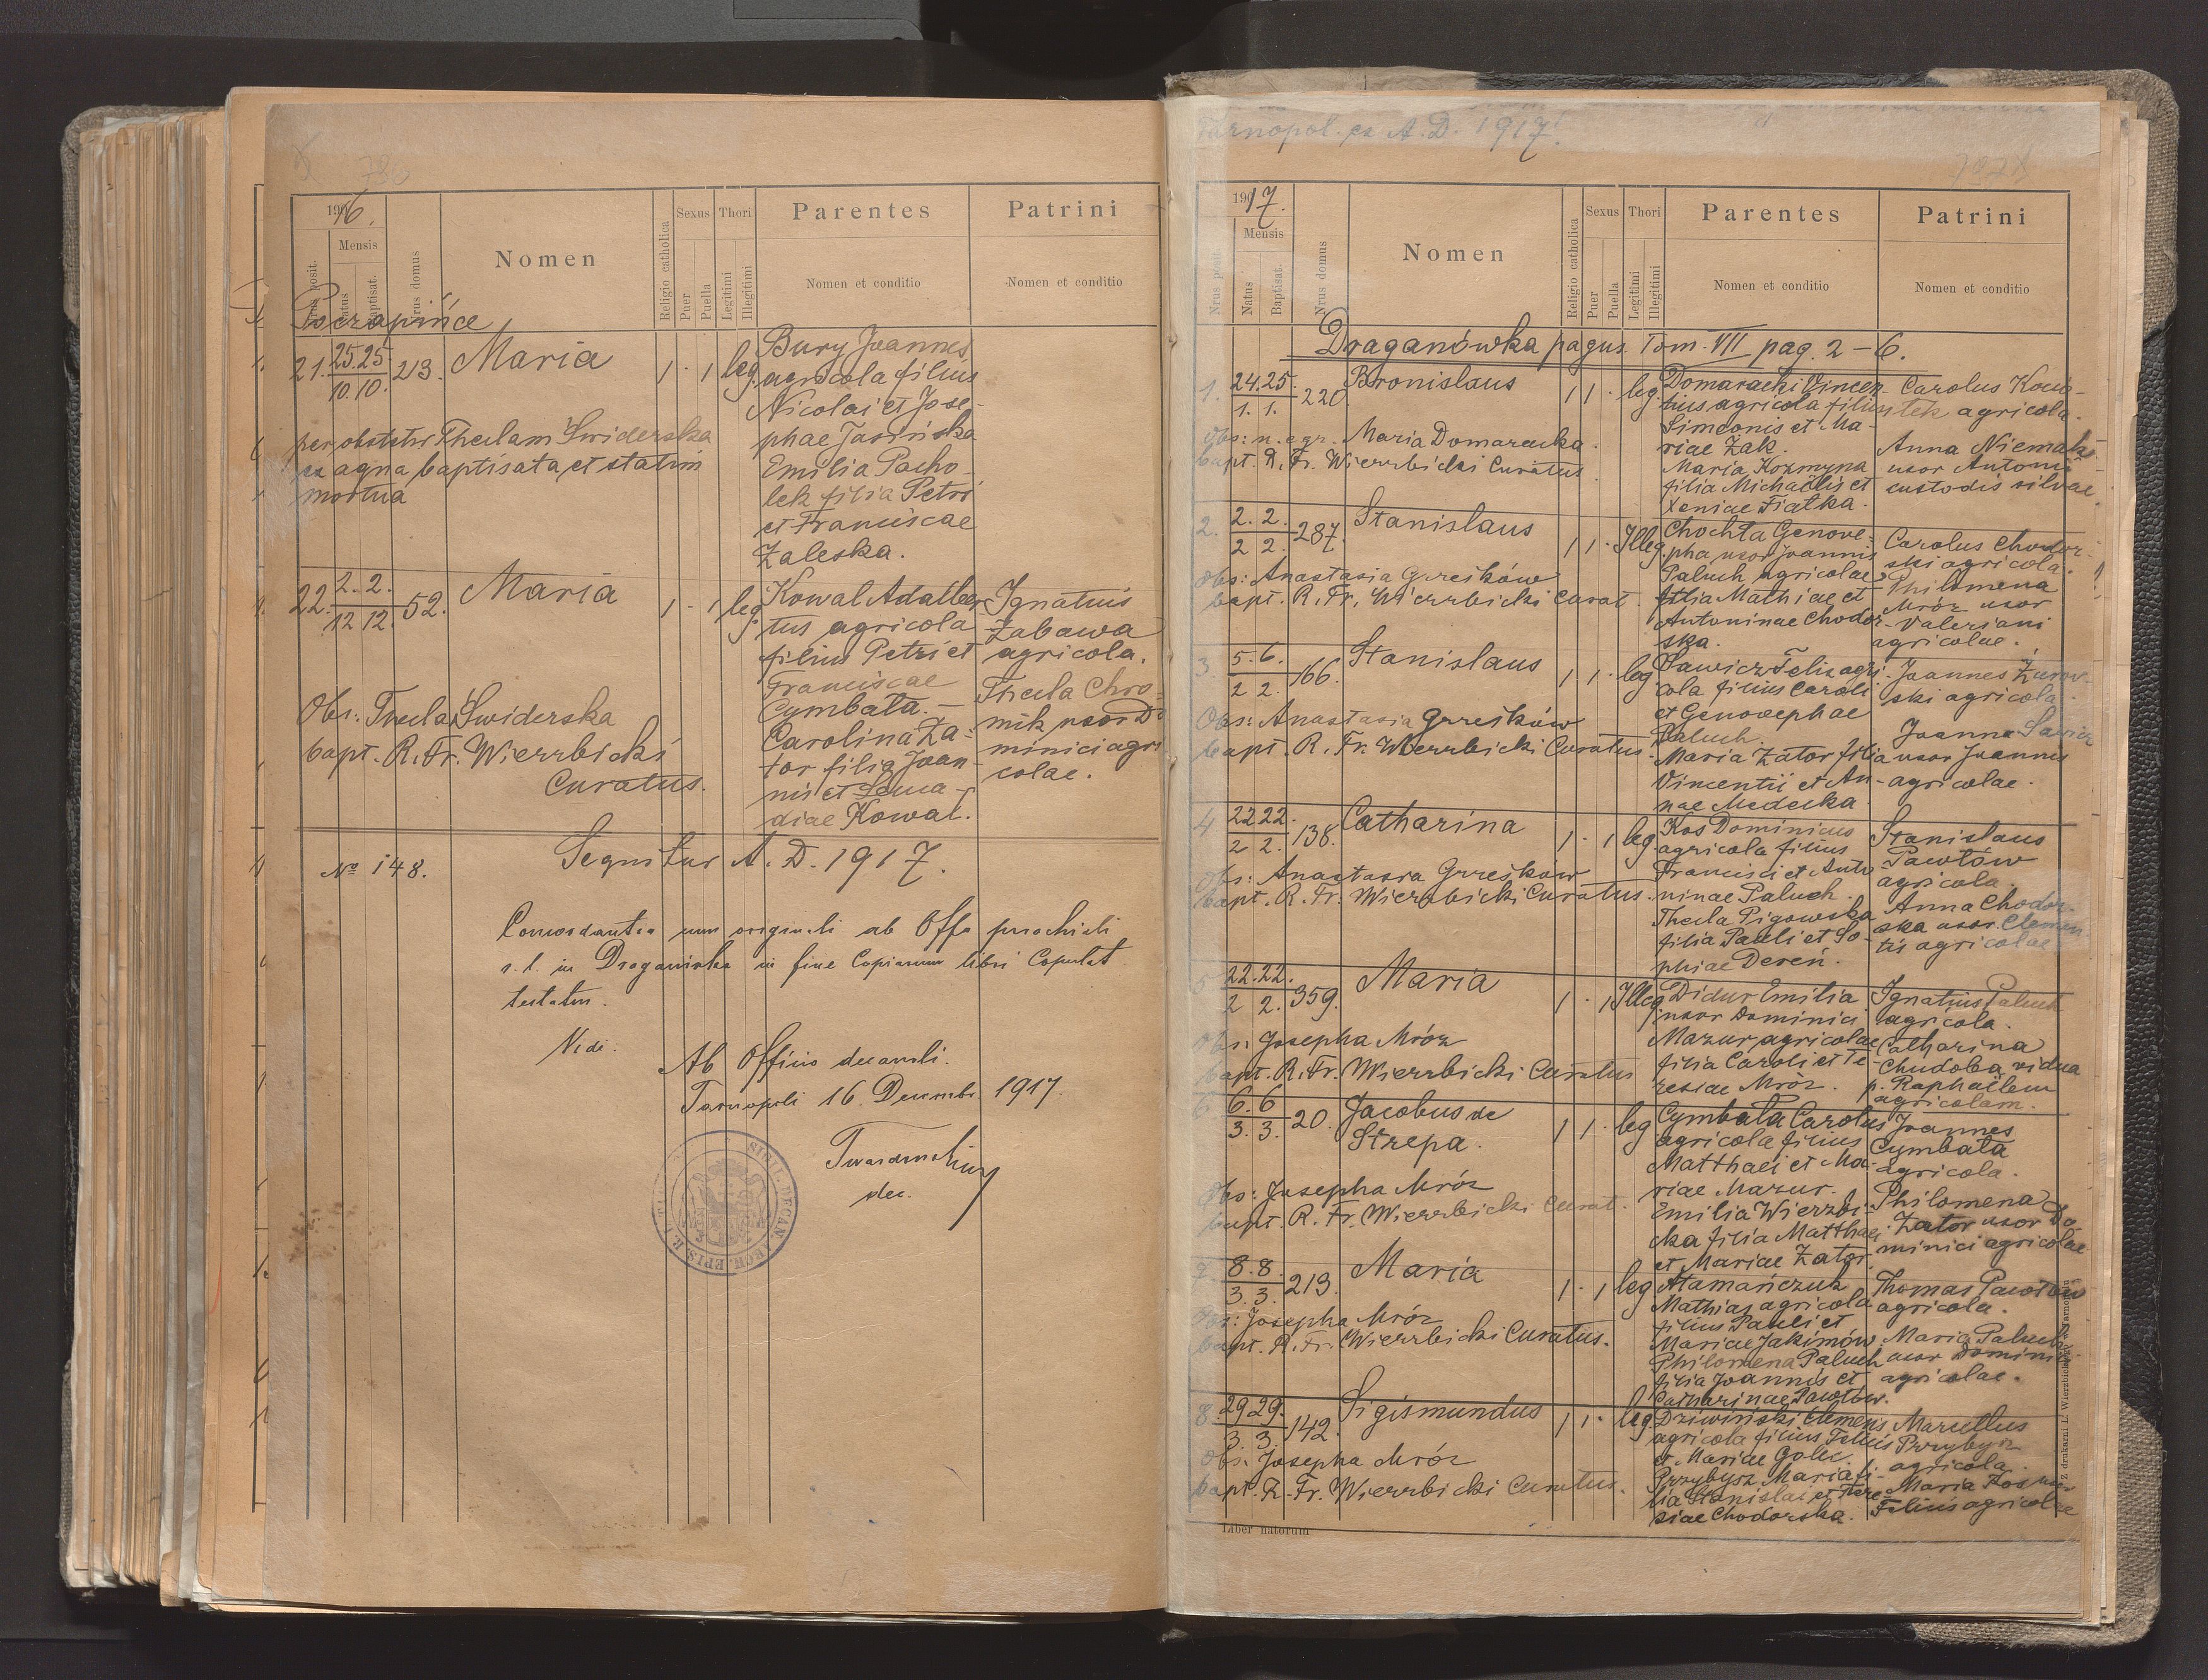 1916.
Nrus posit.
Mensis
Natus
Baptisat.
Nrus domus
Nomen
Religio catholica
Sexus
Puer
Puella
Thori
Legitimi
Illegitimi
Parentes
Nomen et conditio
Patrini
Nomen et conditio
Poczapińce
21. 25. 25. 10. 10. 213. Maria 1 · 1 leg.
Bury Joannes
agricola filius
Nicolai et Jose-
phae Jasińska
Emilia Pacho-
lek filia Petri
et Franciscae
Zaleska.
per obstetr. Theclam Swiderska
ex aqua baptisata et statim
mortua
22. 2. 2. 12 12. 52. Maria 1 · 1 leg.
Kowal Adalber
tus agricola
filius Petri et
Franciscae
Cymbała. –
Carolina Za-
tor filia Joan-
nis et
diae Kowal.
Ignatius
Zabawa
agricola.
Thecla Chro-
mik uxor Do
minici agri
colae.
Obs: Thecla Swiderska
bapt. R. Fr. Wierzbicki
Curatus.
Sequitur A. D. 1917.
No 148.
Concordantia cum originali ab Offo parochiali
r. l. in Draganówka in fine Copiarum libri Copulat
testatur.
Vidi.
Ab Officio decanali.
Tarnopoli 16. Decembr. 1917.
dec.
Tarnopol. ex A. D. 1917.
1917.
Nrus posit.
Mensis
Natus
Baptisat.
Nrus domus
Nomen
Religio catholica
Sexus
Puer
Puella
Thori
Legitimi
Illegitimi
Parentes
Nomen et conditio
Patrini
Nomen et conditio
Draganówka pagus. Tom. VII pag. 2–6.
1. 24. 25. 1. 1. 220. Bronislaus 1 1 · leg.
Domaracki Vincen-
tius agricola filius
Simeonis et Ma-
riae Żak.
Maria Kozmyna
filia Michaëlis et
Xeniae Fiałka.
Carolus
tek agricola.
Anna Niemak
uxor Antonii
custodis silvae.
Obs: n. egz. Maria Domaracka.
bapt. R. Fr. Wierzbicki Curatus
2. 2. 2. 2 2. 287. Stanislaus 1 1 · Illeg.
Chochta Genove-
pha uxor Joannis
Paluch agricolae
filia Mathiae et
Antoninae Chodor-
ska.
Carolus Chodor-
ski agricola.
Philomena
Mróz uxor
Valeriani
agricolae.
Obs: Anastasia Grześków
bapt. R. Fr. Wierzbicki Curat.
3 5. 6. 2 2. 166. Stanislaus 1 1 · leg
Sawicz Felix agri-
cola filius Caroli
et Genovephae
Paluch.
Maria Zator filia
Vincentii et An-
nae Medecka
Joannes Żurow-
ski agricola.
Joanna Sawicz
uxor Joannis
agricolae.
Obs: Anastasia Grześków
bapt. R. Fr. Wierzbicki Curatus.
4 22 22. 2 2. 138. Catharina 1 · 1 leg.
Kos Dominicus
agricola filius
Francisci et Anto-
ninae Paluch.
Thecla Pigowska
filia Pauli et So-
phiae Dereń.
Stanislaus
Pawłów
agricola.
Anna Chodor-
ska uxor Clemen
tis agricolae
Obs: Anastasia Grześków
bapt. R. Fr. Wierzbicki Curatus.
5 22. 22. 2 2. 359. Maria 1 · 1 Illeg.
Didur Emilia
uxor Dominici
Mazur agricolae
filia Caroli et Te-
resiae Mróz.
Ignatius Paluch
agricola.
Catharina
Chudoba vidua
p. Raphaëlem
agricolam.
Obs: Josepha Mróz
bapt. R. Fr. Wierzbicki Curatus
6 6. 6 3. 3. 20. Jacobus de
Strepa. 1 1 · leg
Cymbała Carolus
agricola filius
Matthaei et Ma-
riae Mazur.
Emilia Wierzbi-
cka filia Matthaei
et Mariae Zator.
Joannes
Cymbała
agricola.
Philomena
Zator uxor Do
minici agricolae
Obs: Josepha Mróz
bapt. R. Fr. Wierzbicki Curat.
7. 8. 8. 3. 3. 213. Maria 1 · 1 leg
Atamańczuk
Mathias agricola
filius Pauli et
Mariae Jakimów
Philomena Paluch
filia Joannis et
Catharinae Pawłów.
Thomas Pawłów
agricola.
Maria Paluch
uxor Dominici
agricolae.
Obs: Josepha Mróz
bapt. R. Fr. Wierzbicki Curatus.
8. 29 29. 3. 3. 142. Sigismundus 1 1 · leg.
Dziwiński Clemens
agricola filius Felicis
et Mariae Golec.
Przybysz Maria fi-
lia Stanislai et There-
siae Chodorska.
Marcellus
Przybysz
agricola.
Maria Kos uxor
Felicis agricolae
Obs: Josepha Mróz
bapt. R. Fr. Wierzbicki Curatus.
Liber natorum